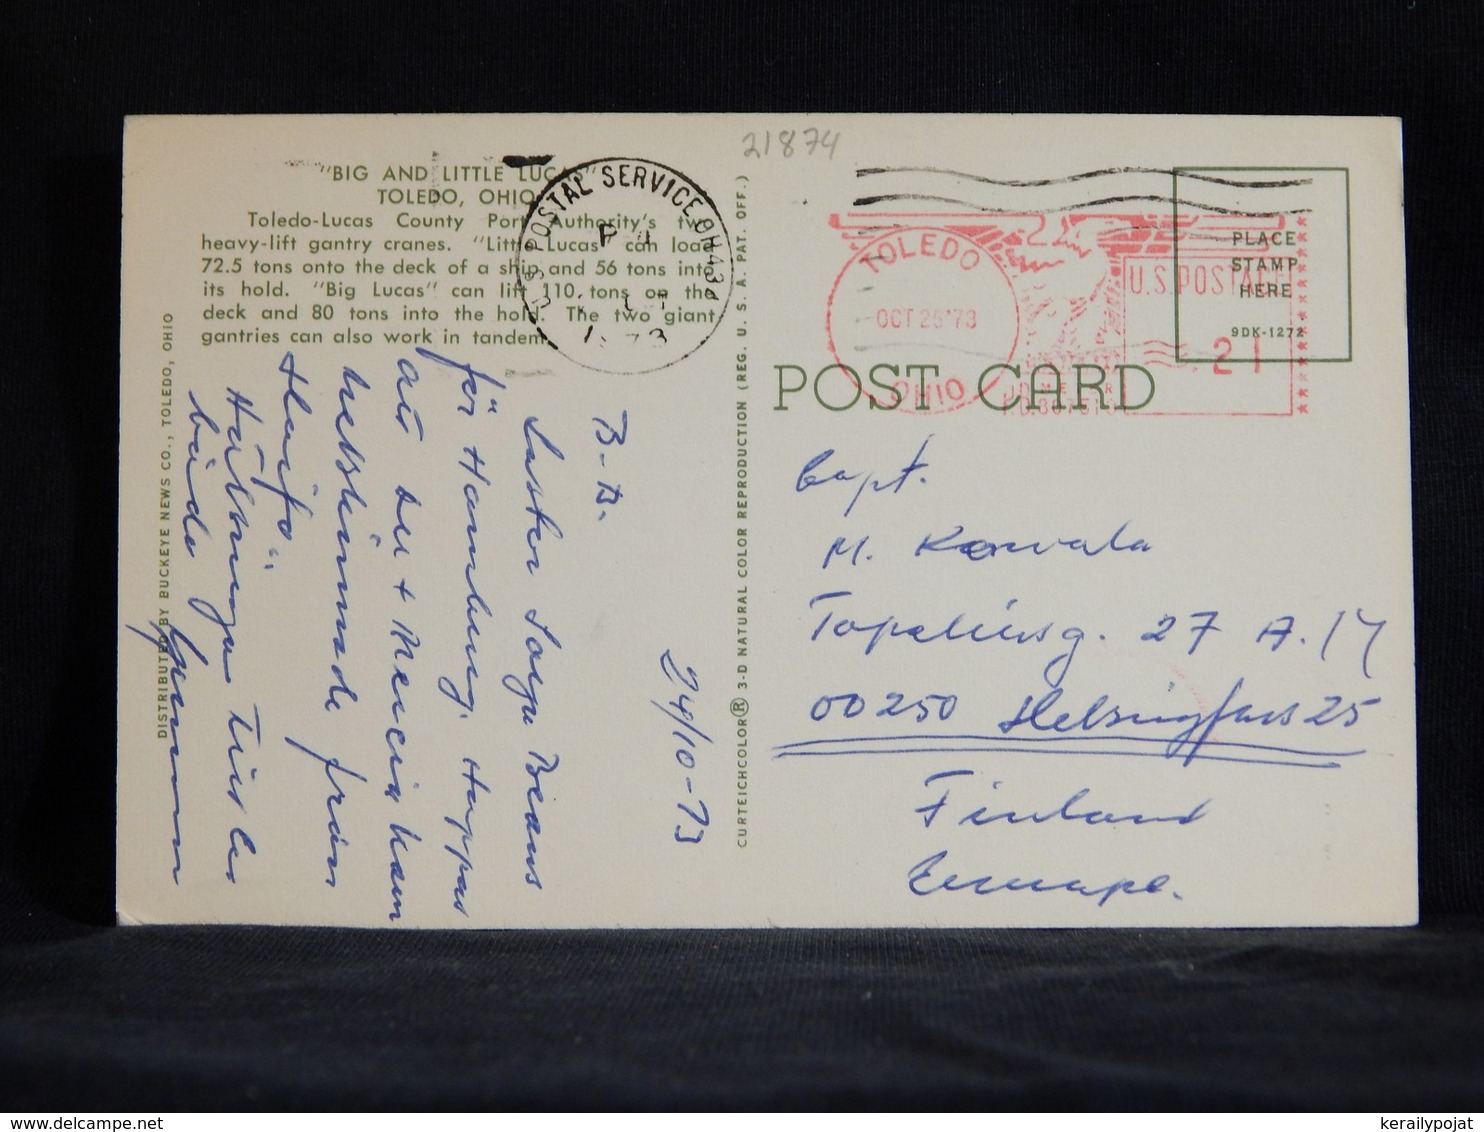 21874
"BIG AND LITTLE LUCAS"
TOLEDO, OHIO
Toledo-Lucas County Port Authority's two
heavy-lift gantry cranes. "Little Lucas" can load
72.5 tons onto the deck of a ship and 56 tons into
its hold. "Big Lucas" can lift 110 tons on the
deck and 80 tons into the hold. The two giant
gantries can also work in tandem.
U.S. POSTAL SERVICE OH 434
1973
DISTRIBUTED BY BUCKEYE NEWS CO., TOLEDO, OHIO
24/10-73
B-B.
Lastar Soya Beans
för Hamburg. Hoppas
att du + Mercia kom
helskinnade från
Hälsningar till er
båda
Gunnar
CURTEICHCOLOR® 3-D NATURAL COLOR REPRODUCTION (REG. U. S. A. PAT. OFF.)
TOLEDO
OCT 25'73
OHIO
U.S. POSTAGE
.21
PLACE
STAMP
HERE
9DK-1272
POST CARD
Capt.
M. Korvala
Topeliusg. 27 A. 14
00250 Helsingfors 25
Finland
Europe.
kerailypojat